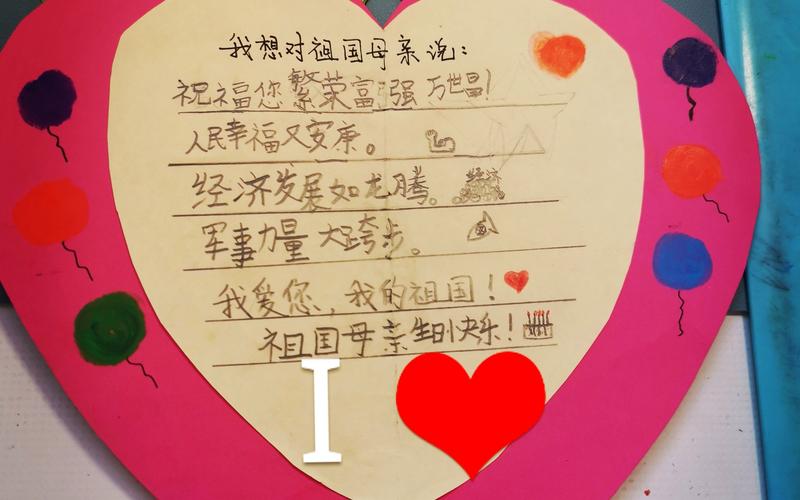 我想对祖国母亲说:
祝福您繁荣富强万世昌!
人民幸福又安康。
经济发展如龙腾。经济
军事力量大跨步。
我爱您,我的祖国!
祖国母亲生日快乐!
I